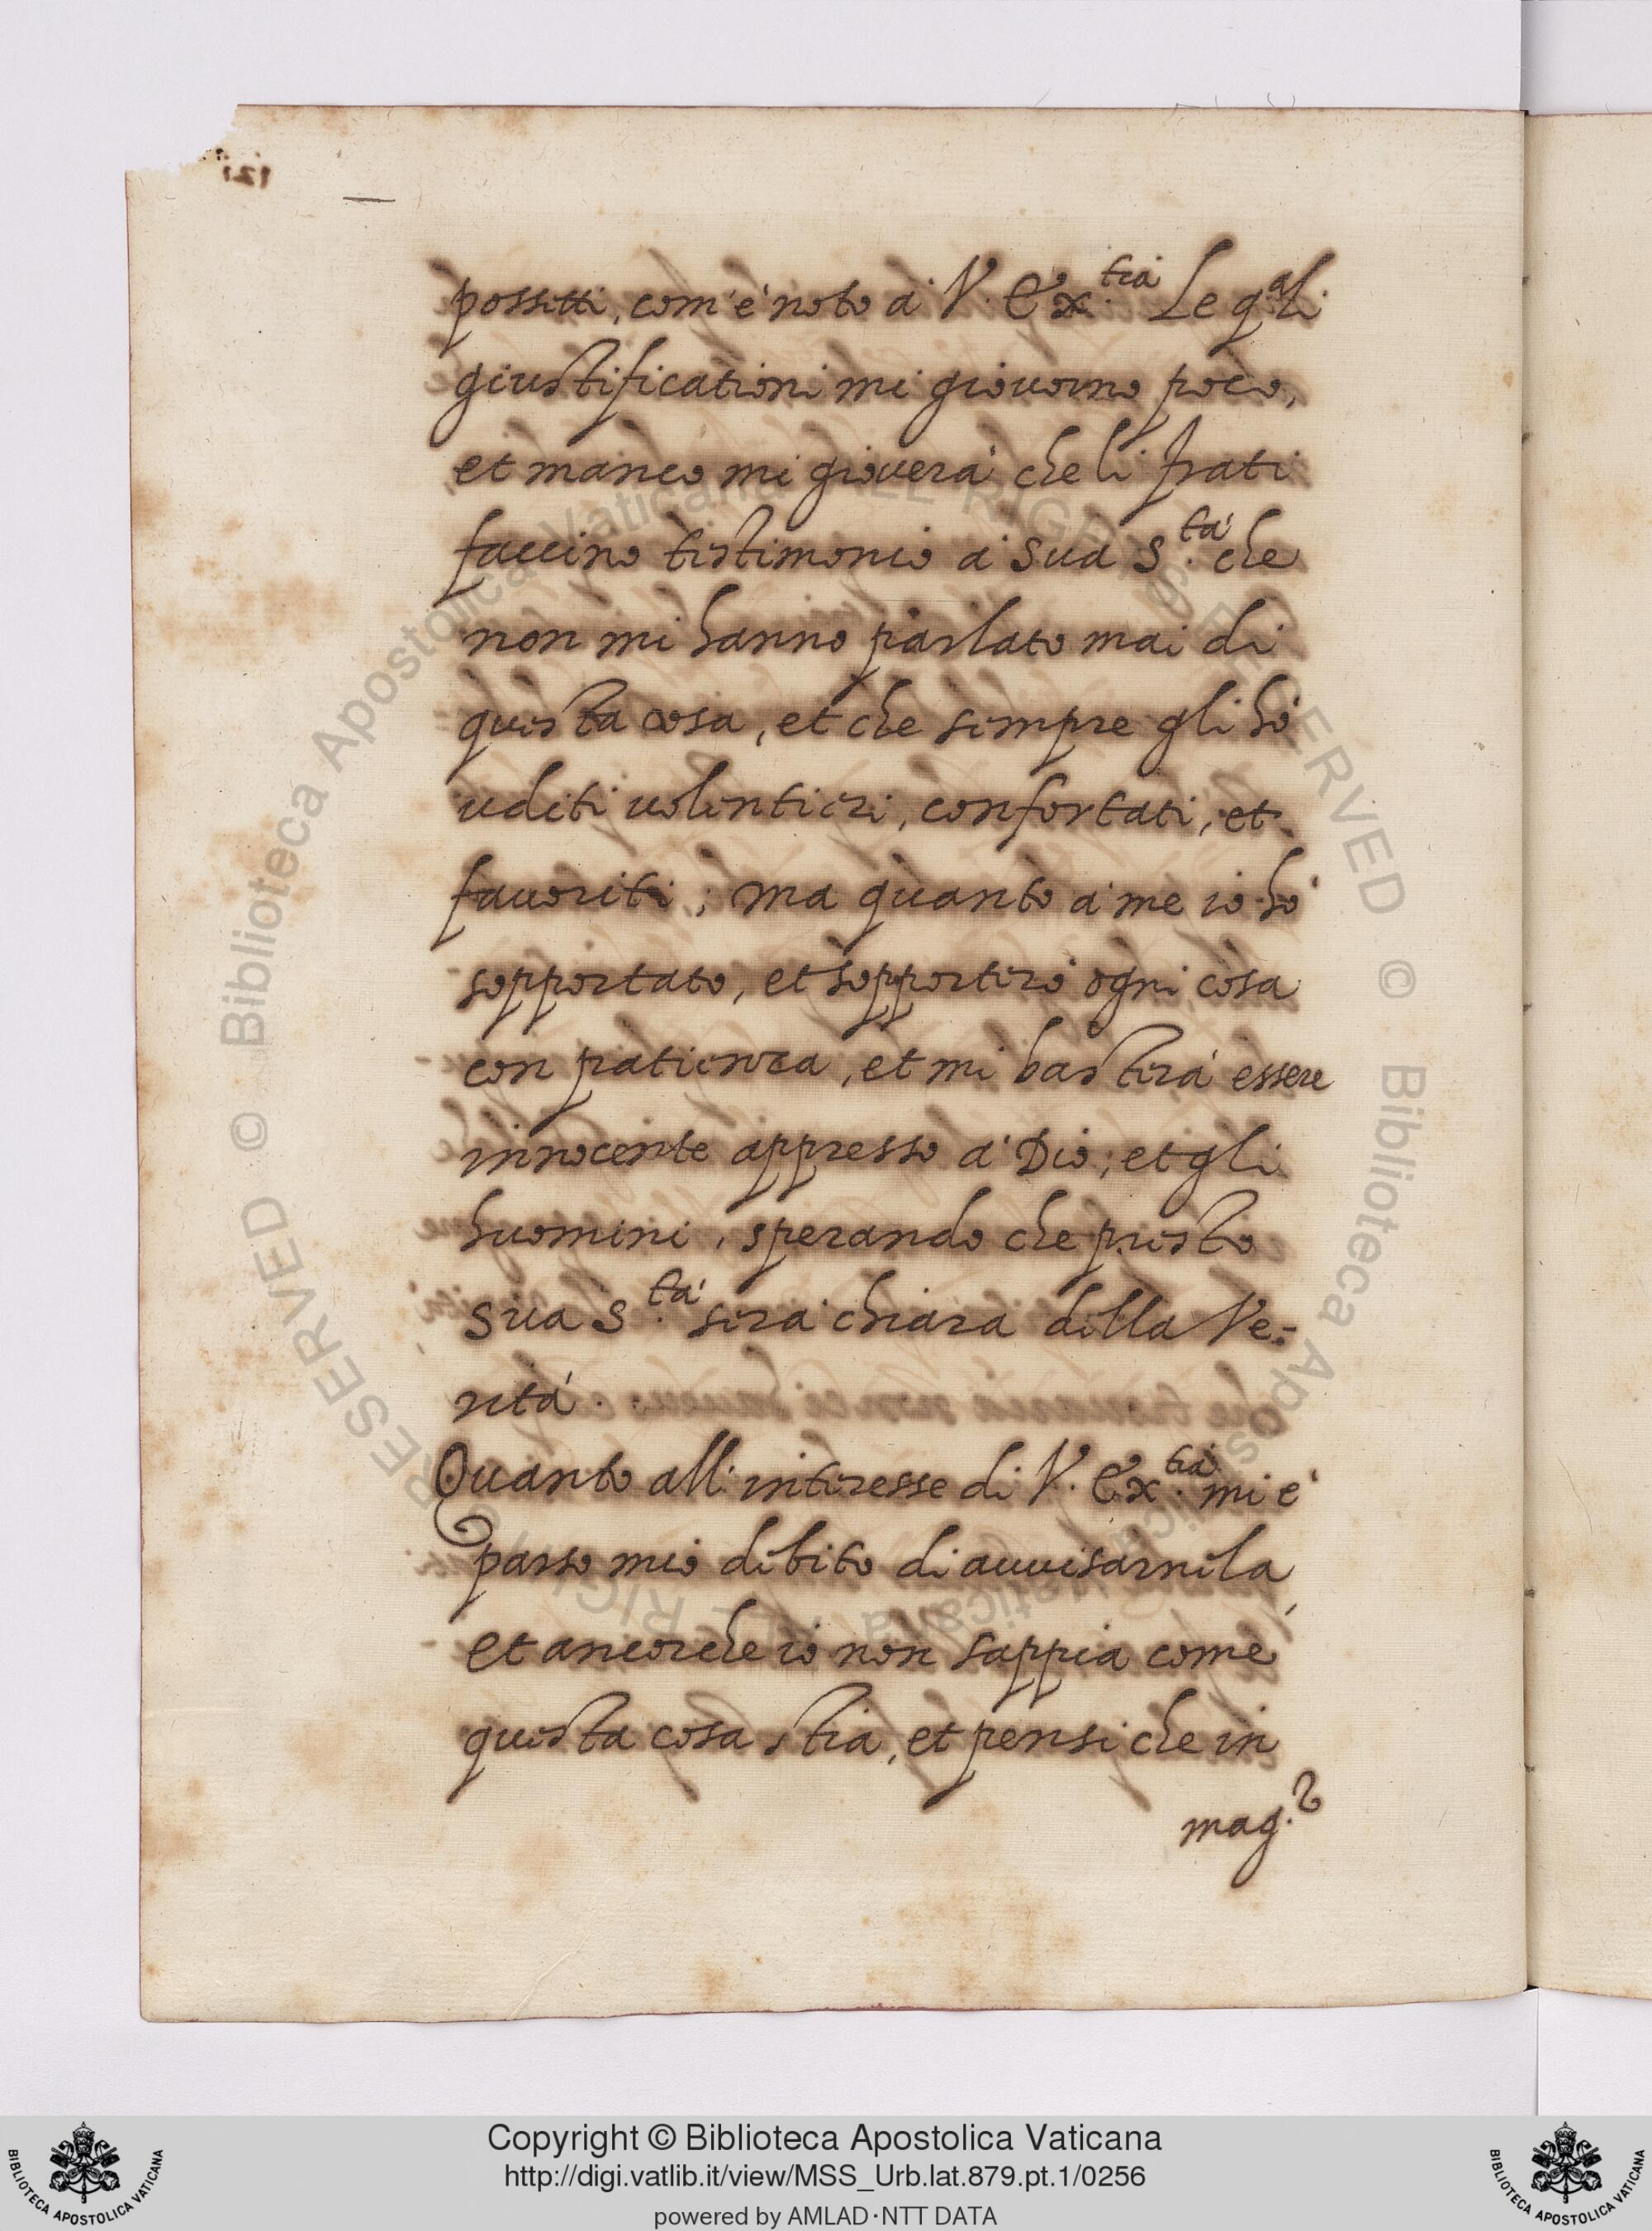 possetti, com'è noto à V. Ex.tia Le q.ali
giustificationi mi giovorno poco,
et manco mi gioverà che li frati
faccino testimonio à sua S.tà che
non mi hanno parlato mai di
questa cosa, et che sempre gli hò
uditi volentieri, confortati, et
favoriti; ma quanto à me io hò
sopportato, et sopporterò ogni cosa
con patienza, et mi basterà essere
innocente appresso à Dio, et gli
huomini, sperando che presto
sua S.tà serà chiara della Ve=
rità.
Quanto all'interesse di V. Ex.tia mi è
parso mio debito di avvisarnela,
et ancorche io non sappia come
questa cosa stia, et pensi che in
mag.re
Copyright © Biblioteca Apostolica Vaticana
http://digi.vatlib.it/view/MSS_Urb.lat.879.pt.1/0256
powered by AMLAD·NTT DATA
BIBLIOTECA APOSTOLICA VATICANA
BIBLIOTECA APOSTOLICA VATICANA
© Biblioteca Apostolica Vaticana ALL RIGHTS RESERVED
© Biblioteca Apostolica Vaticana ALL RIGHTS RESERVED